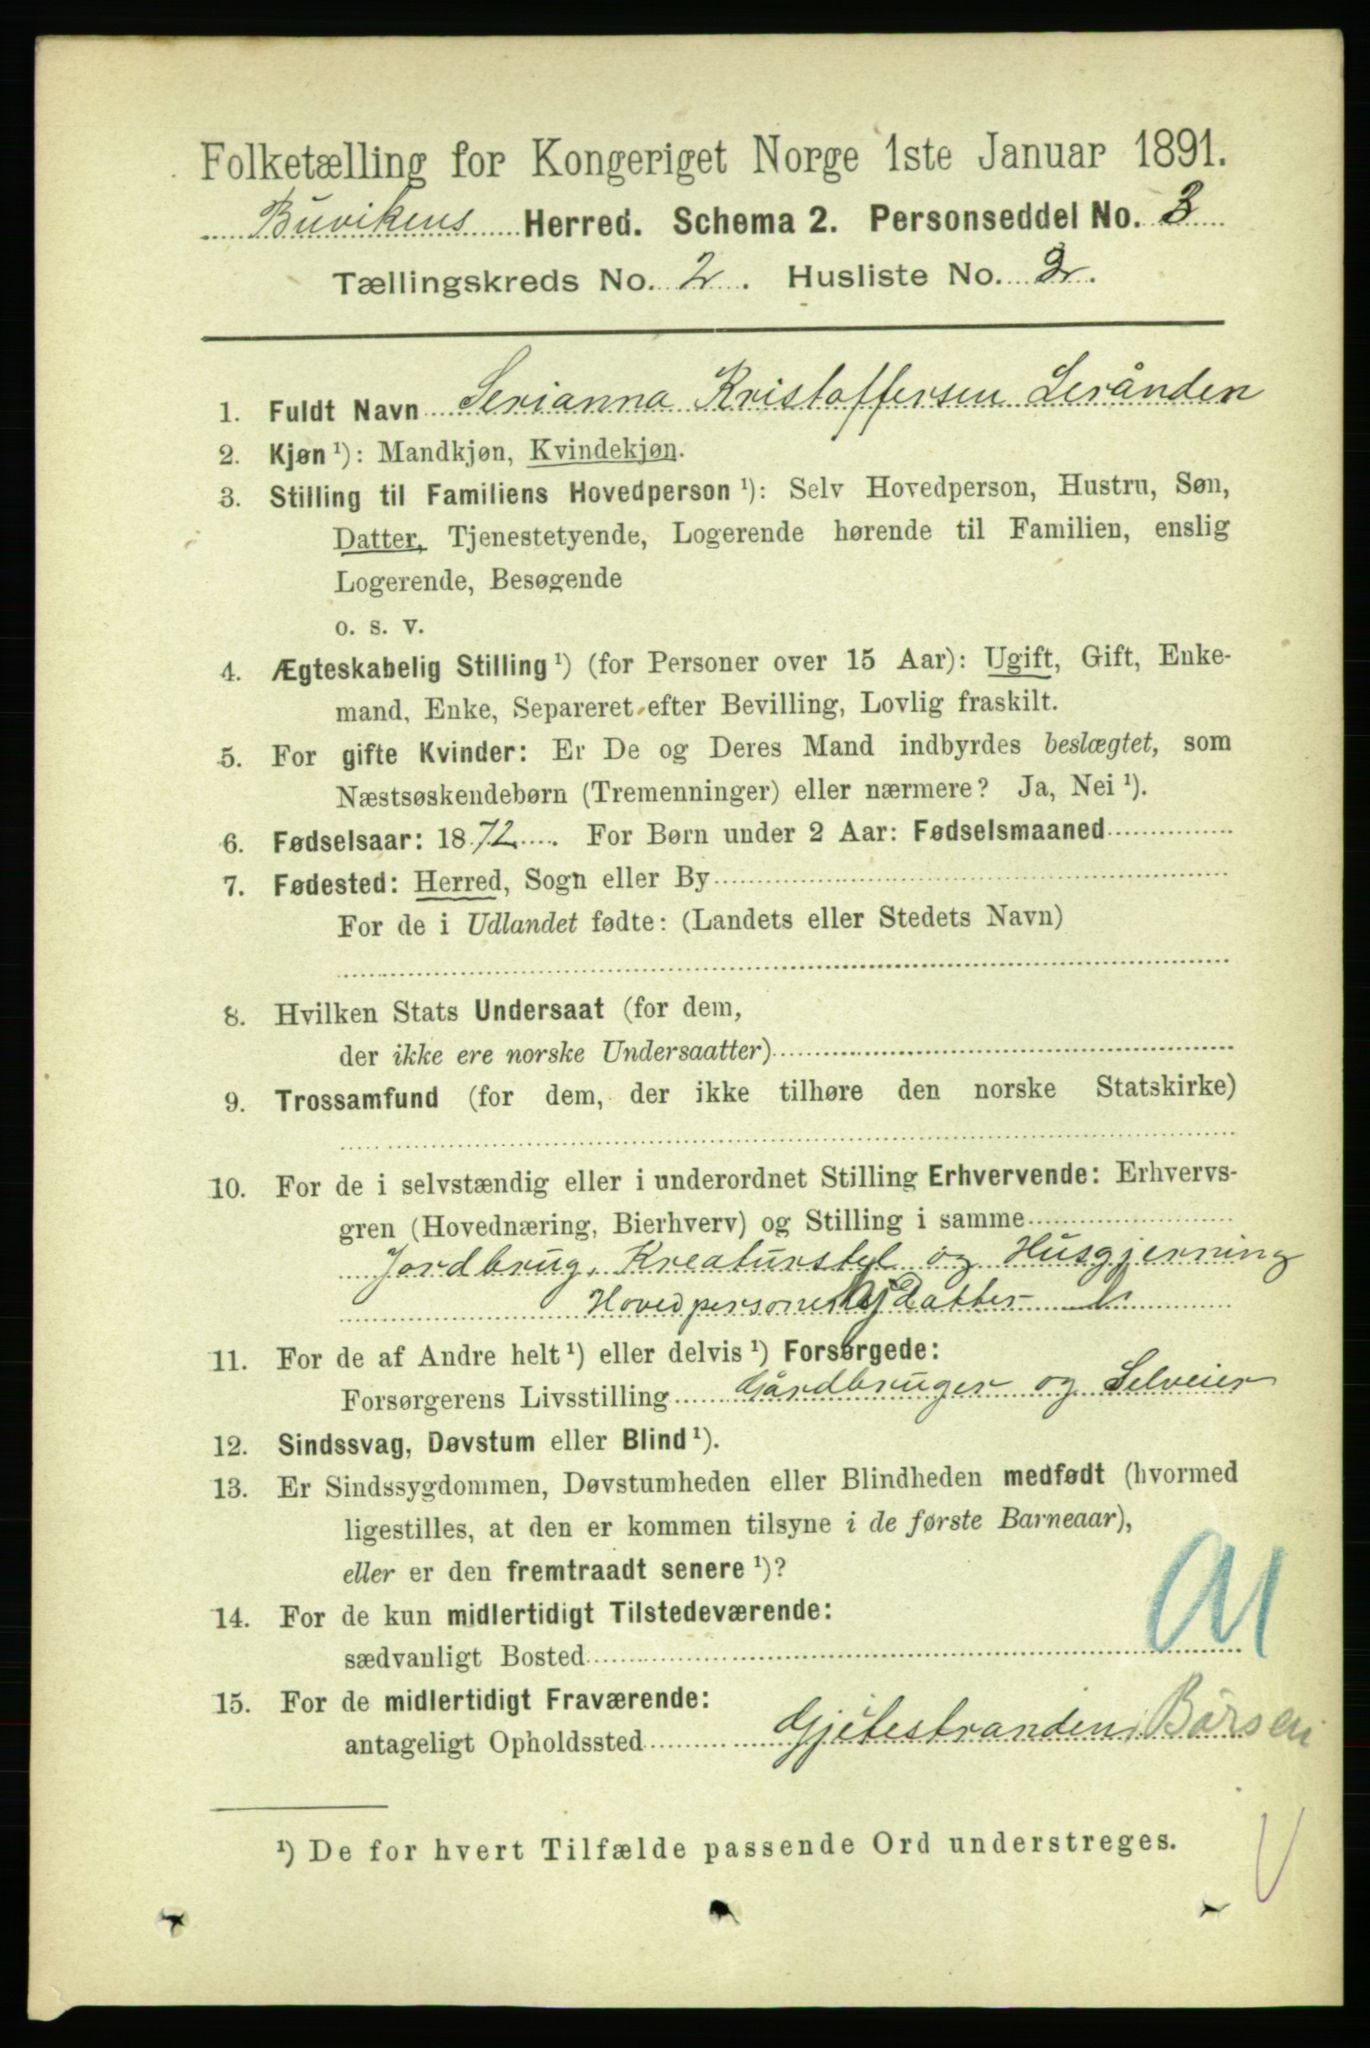 Folketælling for Kongeriget Norge 1ste Januar 1891.
Buvikens Herred. Schema 2. Personseddel No. 3
Tællingskreds No. 2. Husliste No. 2.
1. Fuldt Navn Serianna Kristoffersen Serånden
2. Kjøn ¹): Mandkjøn, Kvindekjøn.
3. Stilling til Familiens Hovedperson ¹): Selv Hovedperson, Hustru, Søn,
Datter, Tjenestetyende, Logerende hørende til Familien, enslig
Logerende, Besøgende
o. s. v.
4. Ægteskabelig Stilling ¹) (for Personer over 15 Aar): Ugift, Gift, Enke-
mand, Enke, Separeret efter Bevilling, Lovlig fraskilt.
5. For gifte Kvinder: Er De og Deres Mand indbyrdes beslægtet, som
Næstsøskendebørn (Tremenninger) eller nærmere? Ja, Nei ¹).
6. Fødselsaar: 1872. For Børn under 2 Aar: Fødselsmaaned
7. Fødested: Herred, Sogn eller By
For de i Udlandet fødte: (Landets eller Stedets Navn)
8. Hvilken Stats Undersaat (for dem,
der ikke ere norske Undersaatter)
9. Trossamfund (for dem, der ikke tilhøre den norske Statskirke)
10. For de i selvstændig eller i underordnet Stilling Erhvervende: Erhvervs-
gren (Hovednæring, Bierhverv) og Stilling i samme
Jordbrug, Kreaturstel og Husgjerning
Hovedpersonens Datter
11. For de af Andre helt ¹) eller delvis ¹) Forsørgede:
Forsørgerens Livsstilling Gårdbruger og Selveier
12. Sindssvag, Døvstum eller Blind ¹).
13. Er Sindssygdommen, Døvstumheden eller Blindheden medfødt (hvormed
ligestilles, at den er kommen tilsyne i de første Barneaar),
eller er den fremtraadt senere ¹)?
14. For de kun midlertidigt Tilstedeværende:
sædvanligt Bosted
15. For de midlertidigt Fraværende:
antageligt Opholdssted Gjetestranden, Børsen
¹) De for hvert Tilfælde passende Ord understreges.